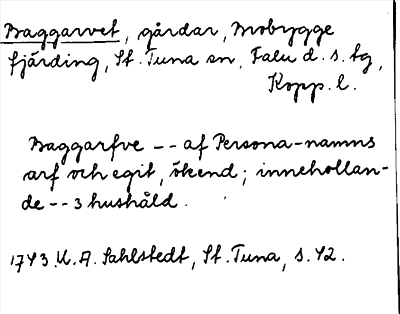 Baggarvet, gårdar, Brobygge
fjärding, St. Tuna sn, Falu d. s. tg,
Kopp. l.
Baggarfve -- af Persona-namns
arf och egit, ökend; innehollan-
de -- 3 hushåld.
1743. U. A. Sahlstedt, St. Tuna, s. 42.